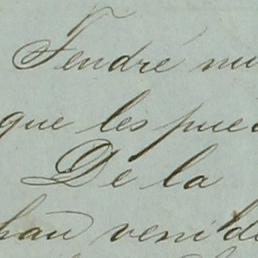 Tendré mu
que les pued
De la
han venido